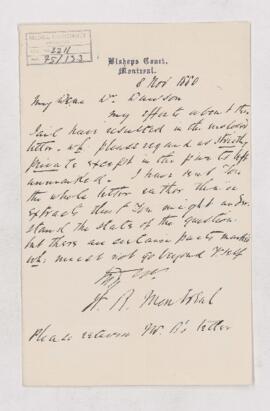 2211
75/133
Bishops Court,
Montreal.
8 Nov 1880
My dear Dr. Dawson
My efforts about the
have resulted in the enclosed
letter. wh. please regard as strictly
private except in the parts left
unmarked. I have sent you
the whole letter rather than
extracts that you might under
stand the state of the question
but there are certain parts marked
wh. must not go beyond yrself
W. B. Montreal
Please return Mr. B's letter